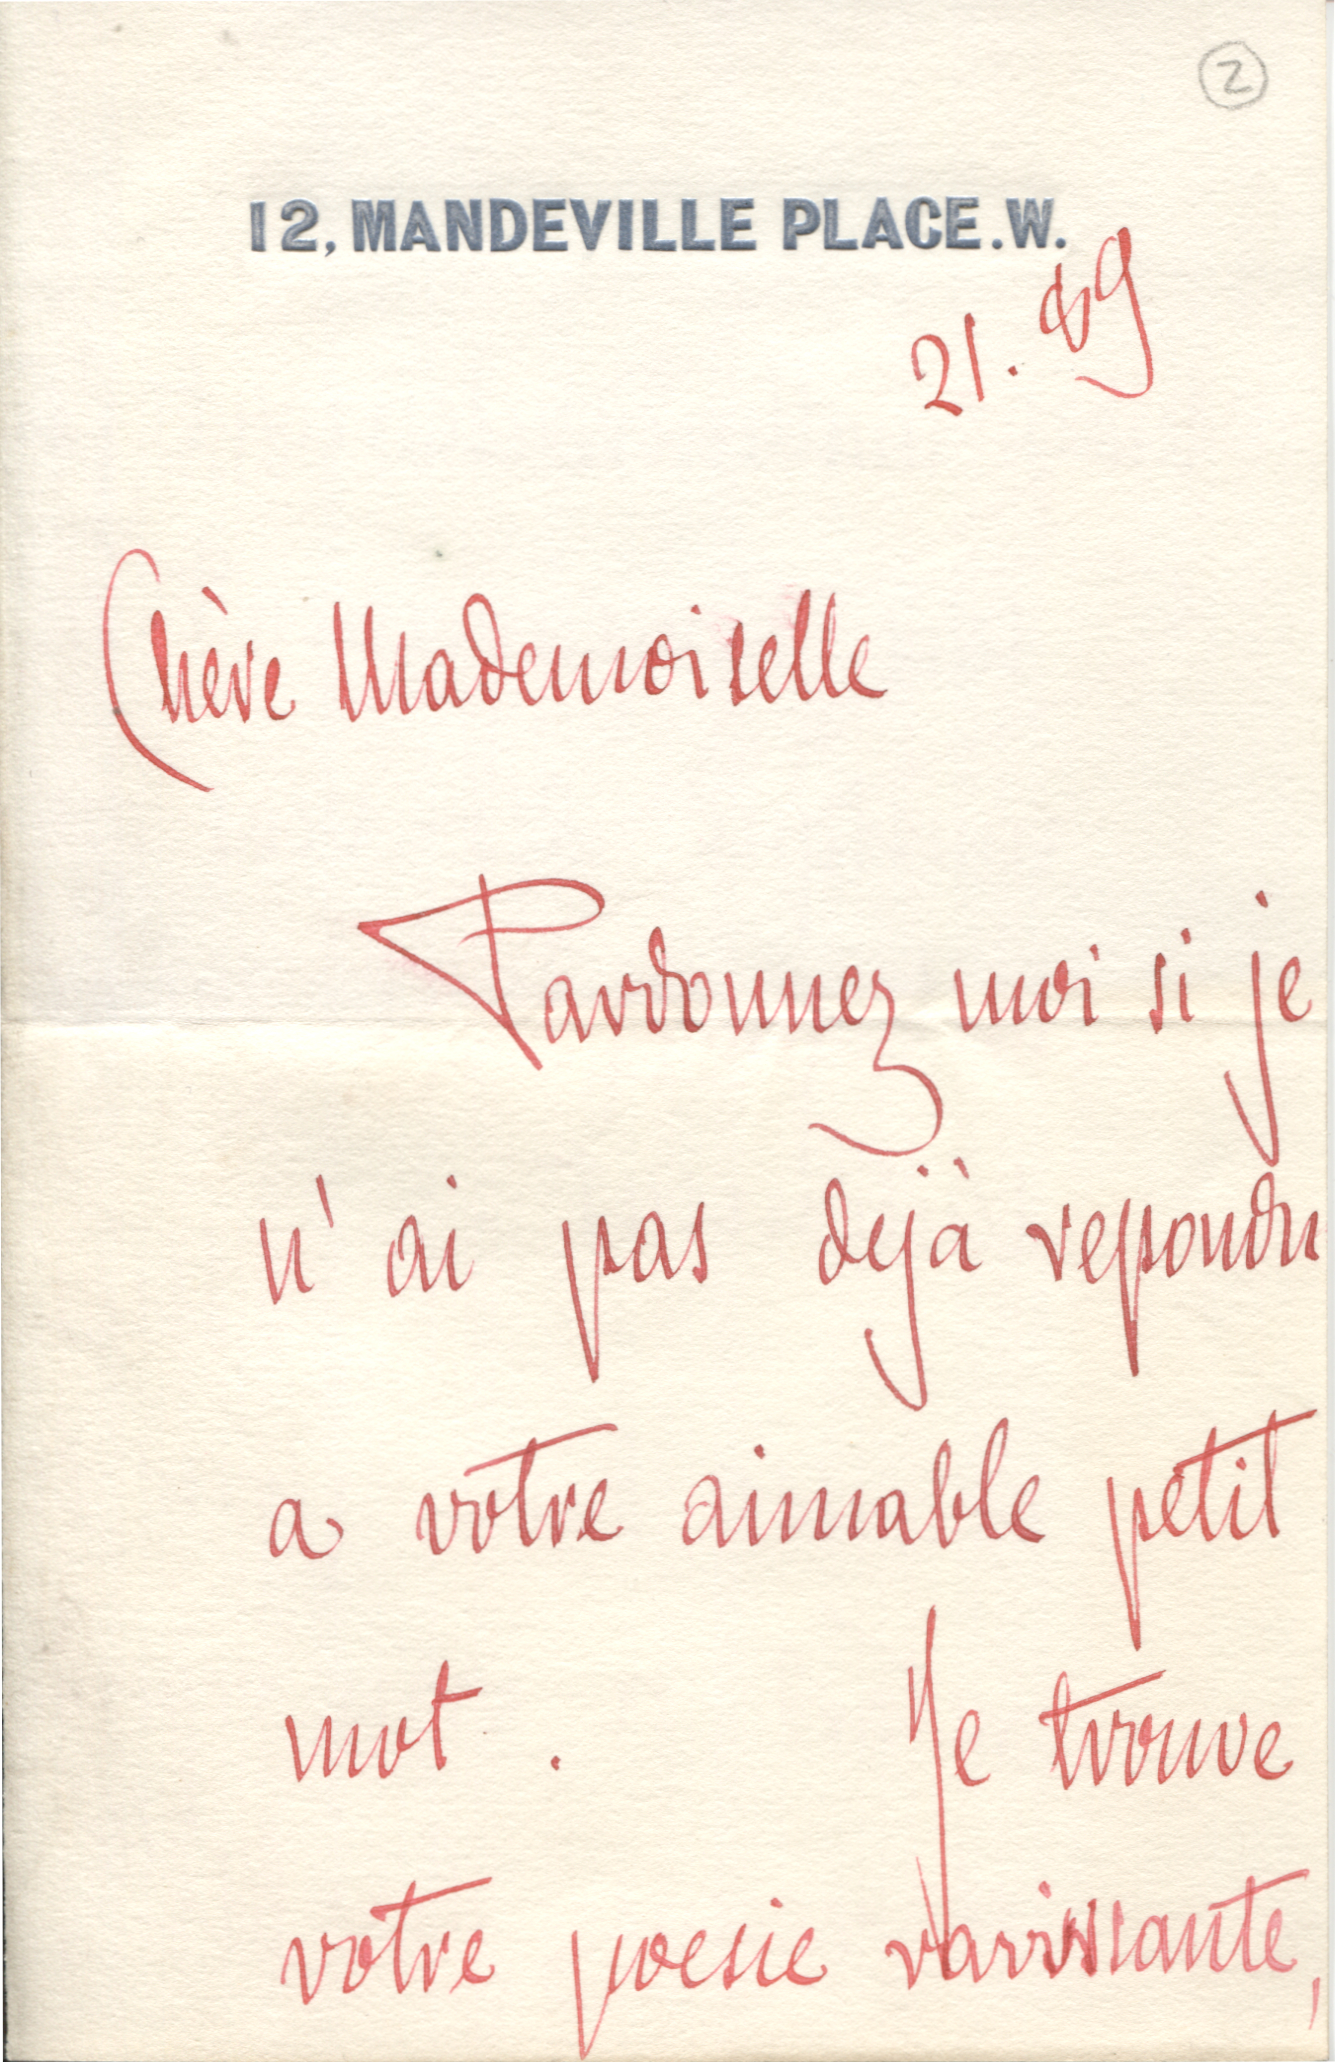 2
12, MANDEVILLE PLACE.W.
21. 89
Chère Mademoiselle
Pardonnez moi si je
n'ai pas dejà repondu
a votre aimable petit
mot. Je trouve
votre poesie ravissante,